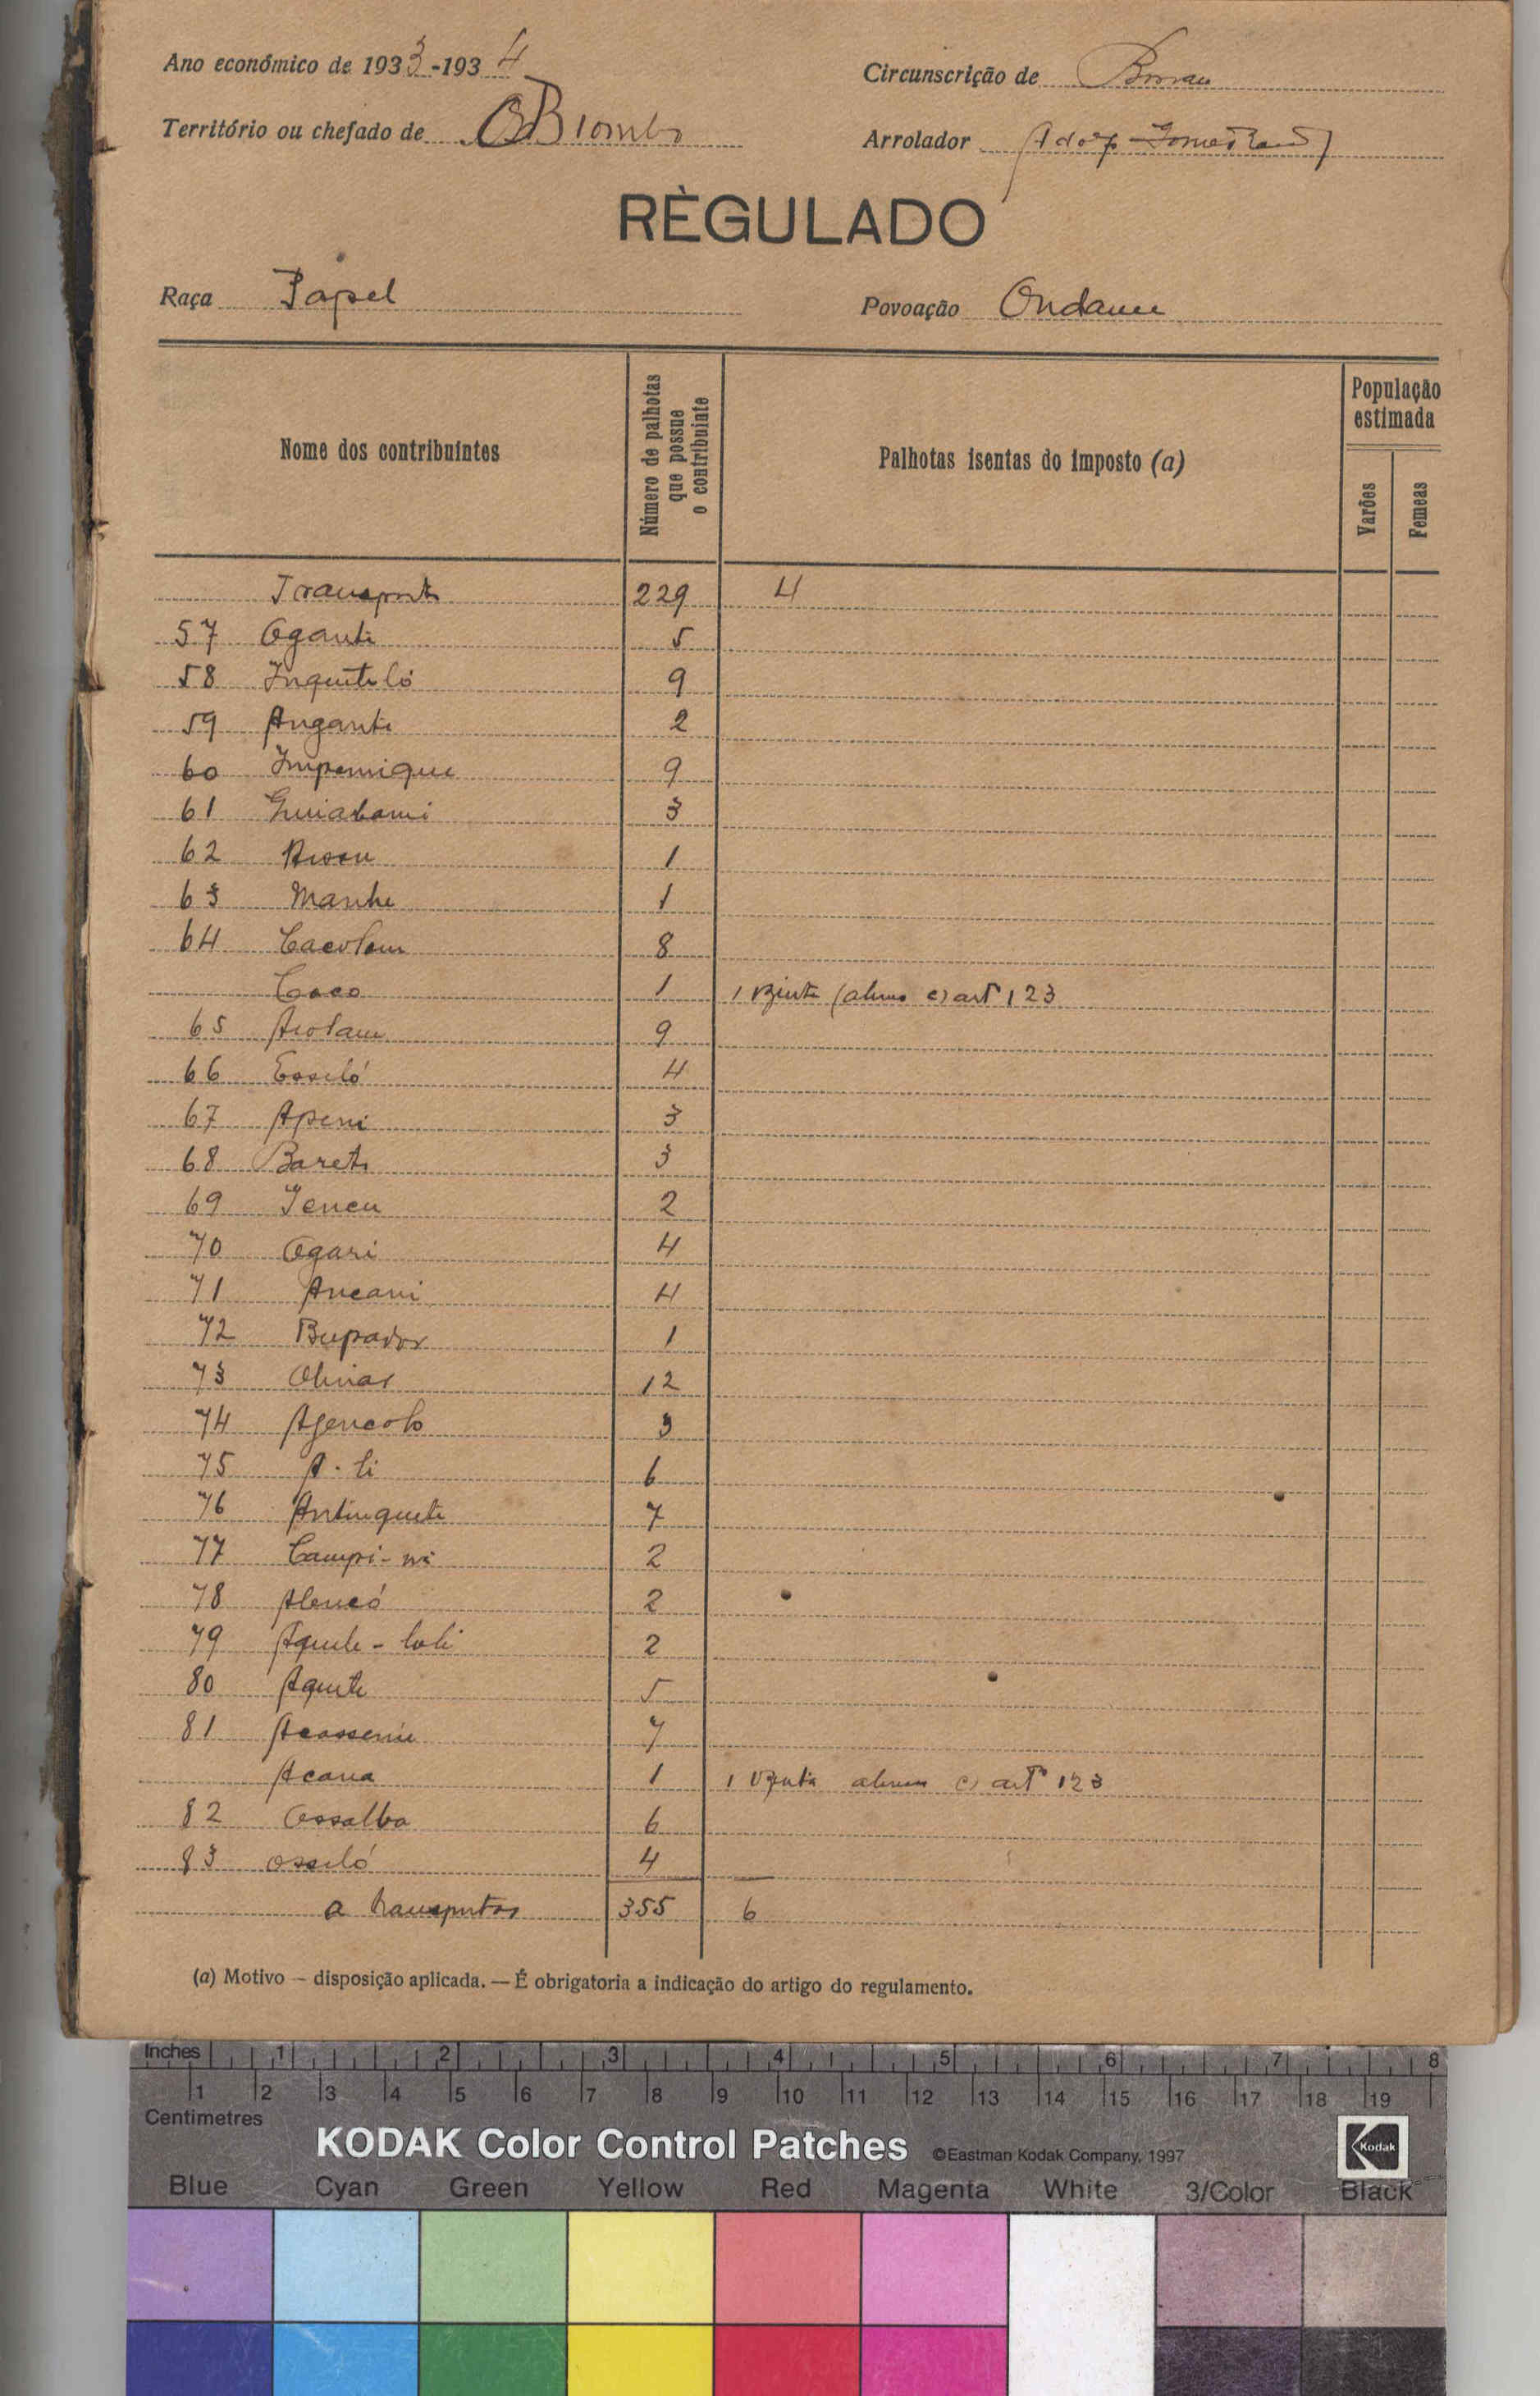 Ano económico de 1933-1934
Circunscrição de Bissau
Território ou chefado de Biombo
Arrolador
RÈGULADO
Raça Papel
Povoação Ondame
Nome dos contribuintes
Número de palhotas que possue o contribuinte
Palhotas isentas do imposto (a)
População estimada
Varões
Femeas
Transporte 229 4
57 Oganti 5
58 Inquitiló 9
59 Anganti 2
60 Impenique 9
61 3
62 1
63 Manhe 1
64 8
Coco 1 1 art° 123
65 9
66 Essiló 4
67 Apeni 3
68 Bareti 3
69 2
70 Ogari 4
71 Ancani 4
72 Bupador 1
73 12
74 Agencolo 3
75 A-li 6
76 Antinquite 7
77 Campi-ni 2
78 Alencó 2
79 2
80 Aquite 5
81 7
Acana 1 1 art° 123
82 Ossalba 6
83 Ossiló 4
a transportar 355 6
(a) Motivo — disposição aplicada. — É obrigatoria a indicação do artigo do regulamento.
Inches 1 2 3 4 5 6 7 8
1 2 3 4 5 6 7 8 9 10 11 12 13 14 15 16 17 18 19
Centimetres
KODAK Color Control Patches ©Eastman Kodak Company, 1997 Kodak
Blue Cyan Green Yellow Red Magenta White 3/Color Black